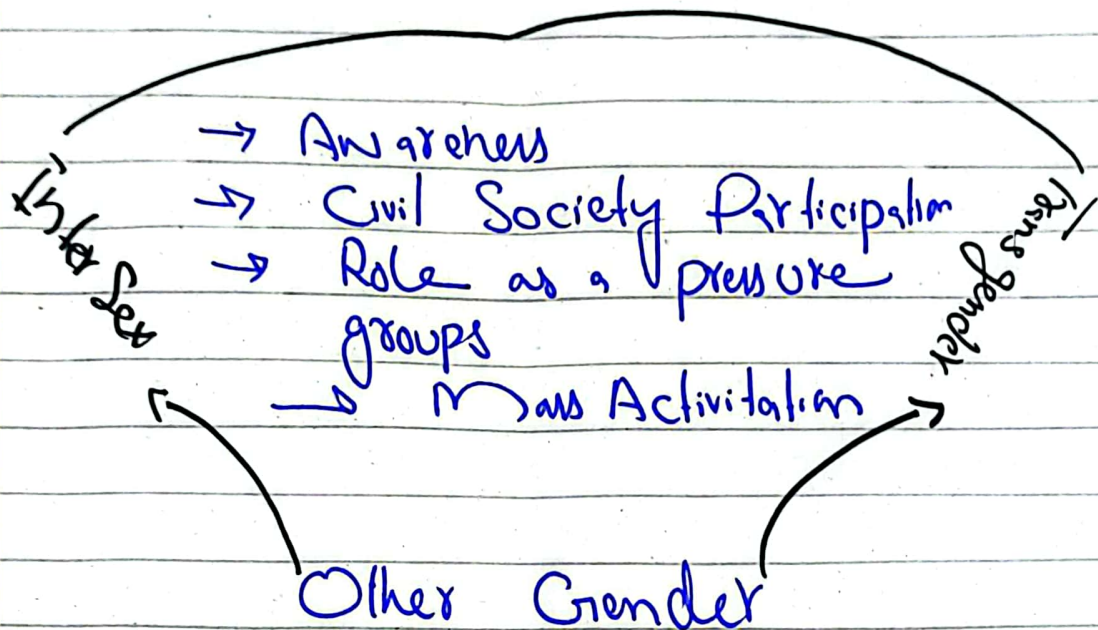 → Awareness
→ Civil Society Participation
→ Role as a pressure
groups
→ Mass Activitation
Inter Sex
Trans gender
Other Gender